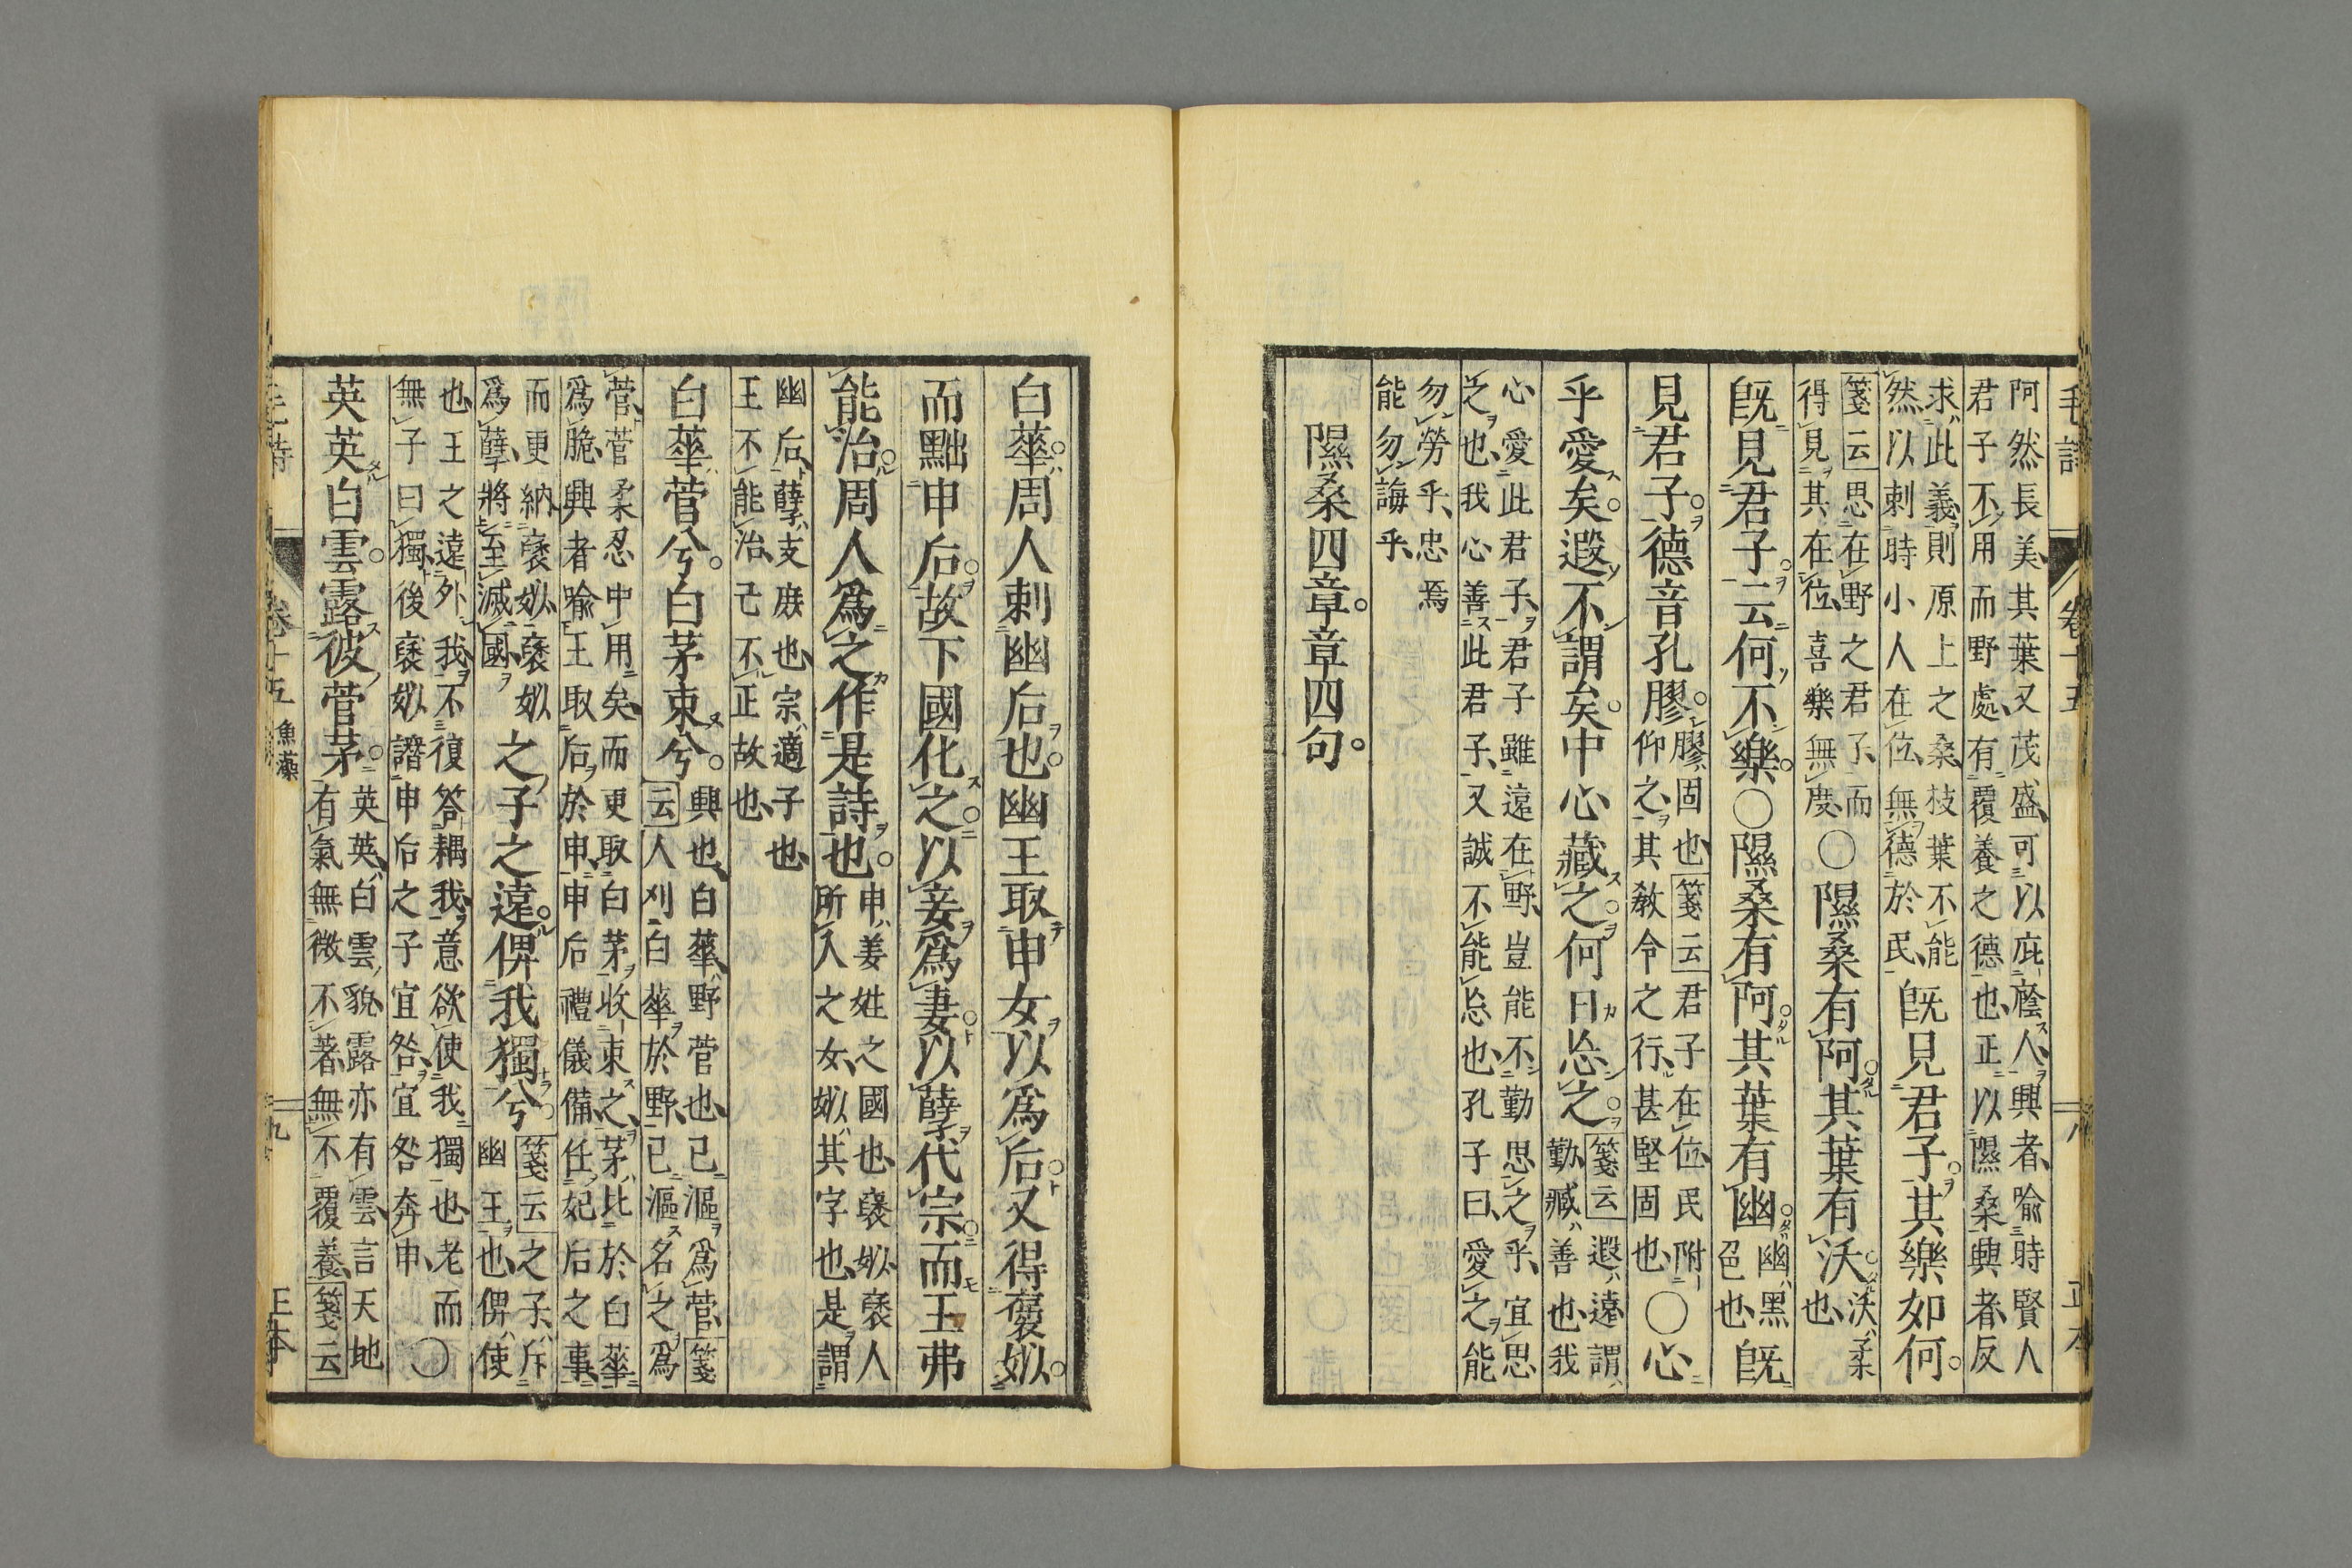 毛詩 卷十五 八 正本
阿然長美其葉又茂盛可以庇蔭人興者喻時賢人
君子不用而野處有覆養之德也正以隰桑興者反
求此義則原上之桑枝葉不能
然以刺時小人在位無德於民
旣見君子其樂如何
箋云思在野之君子而
得見其在位喜樂無度
○隰桑有阿其葉有沃
沃柔
也
旣見君子云何不樂○隰桑有阿其葉有幽
幽黑
色也
旣
見君子德音孔膠
膠固也箋云君子在位民附
仰之其敎令之行甚堅固也
○心
乎愛矣遐不謂矣中心藏之何日忘之
箋云遐遠謂
勤臧善也我
心愛此君子君子雖遠在野豈能不勤思之乎宜思
之也我心善此君子又誠不能忘也孔子曰愛之能
勿勞乎忠焉
能勿誨乎
隰桑四章章四句
白華周人刺幽后也幽王取申女以爲后又得褒姒
而黜申后故下國化之以妾爲妻以孽代宗而王弗
能治周人爲之作是詩也
申姜姓之國也襃姒襃人
所入之女姒其字也是謂
幽后孽支庶也宗適子也
王不能治己不正故也
白華菅兮白茅束兮
興也白華野菅也已漚爲菅箋
云人刈白華於野已漚名之爲
菅菅柔忍中用矣而更取白茅收束之茅比於白華
爲脆興者喻王取后於申申后禮儀備任妃后之事
而更納襃姒襃姒
爲孽將至滅國
之子之遠俾我獨兮
箋云之子斥
幽王也俾使
也王之遠外我不復答耦我意欲使我獨也老而
無子曰獨後襃姒譖申后之子宜咎宜咎奔申
○
英英白雲露彼菅茅
英英白雲貌露亦有雲言天地
有氣無微不著無不覆養箋云
毛詩 卷十五 魚藻 九 正本